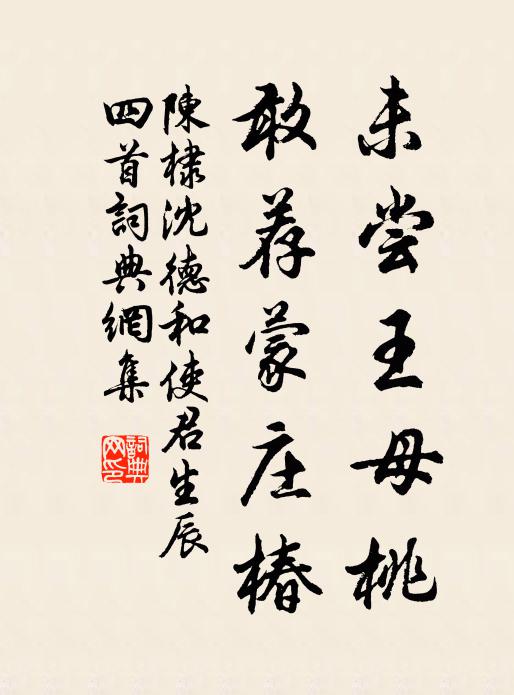 未尝王母桃
敢荐蒙庄椿
陳棣沈德和使君生辰
四首詞典網集
詞典网印